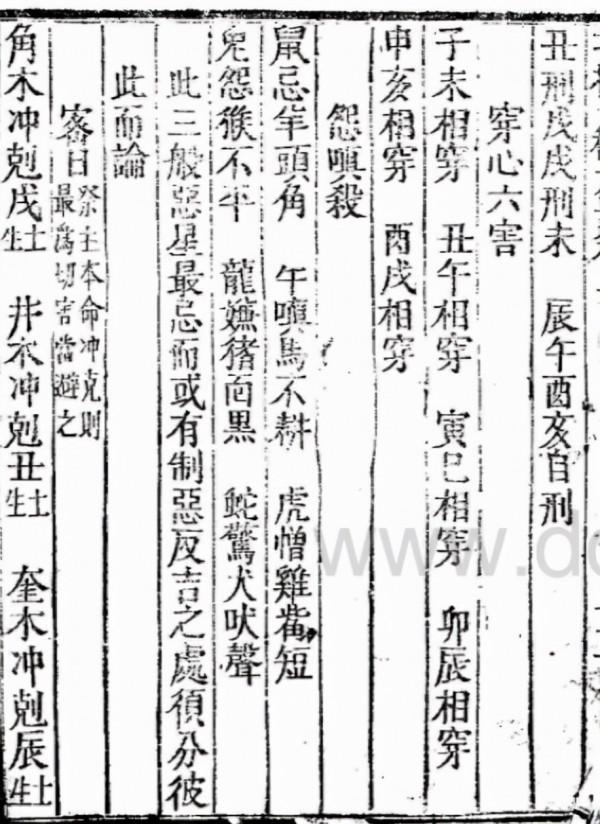 丑刑戌戌刑未 辰午酉亥自刑
穿心六害
子未相穿 丑午相穿 寅巳相穿 卯辰相穿
申亥相穿 酉戌相穿
怨嗔殺
鼠忌羊頭角 午嗔馬不耕 虎憎雞觜短
兔怨猴不平 龍嫌猪面黑 蛇驚犬吠聲
此三般惡星最忌而或有制惡反吉之處須分彼
此而論
害日 祭主本命冲克則
最為切害當避之
角木冲剋戌土生 井木冲剋丑土生 奎木冲剋辰土生
www.do